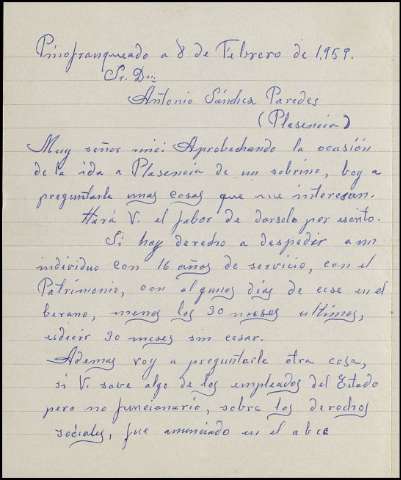 Pinofranqueado a 8 de Febrero de 1.959.
Sr. Don
Antonio Sánchez Paredes
(Plasencia)
Muy señor mio: Aprobechando la ocasión
de la ida a Plasencia de un sobrino, boy a
preguntarle unas cosas que me interesan.
Hará V. el fabor de darselo por escrito.
Si hay derecho a despedir a un
individuo con 16 años de servicio, con el
Patrimonio, con algunos dias de cese en el
berano, menos los 30 meses ultimos,
esdecir 30 meses sin cesar.
Ademas voy a preguntarle otra cosa,
si V. sabe algo de los empleados del Estado
pero no funcionario, sobre los derechos
sociales, fue anunciado en el abce